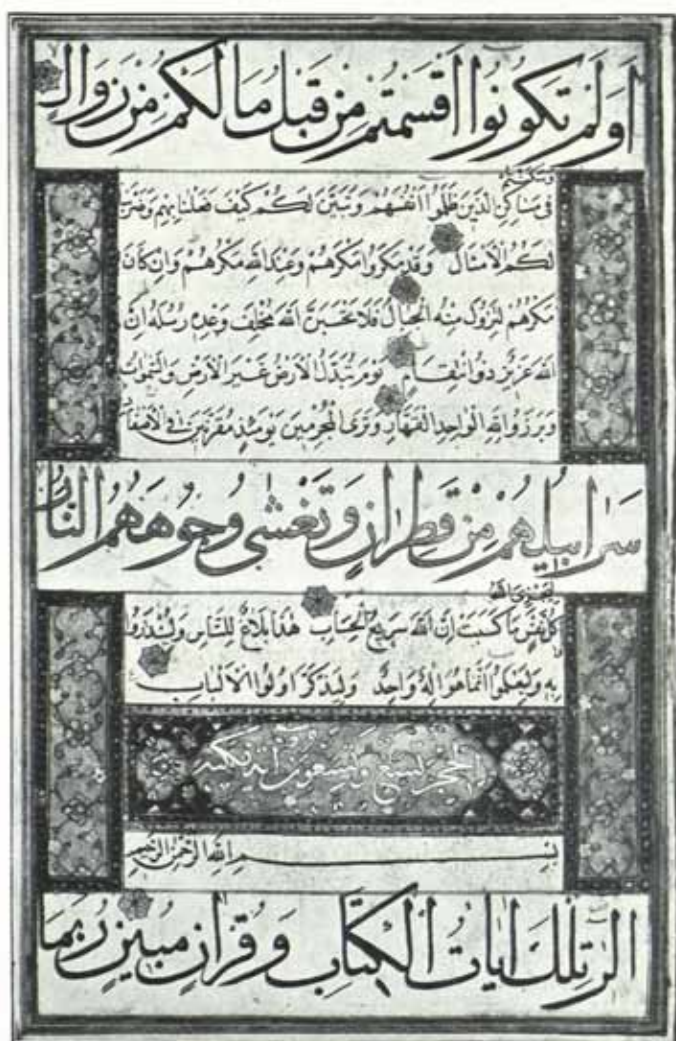 اَوَلَمْ تَكُونُوا اَقْسَمْتُمْ مِنْ قَبْلُ مَا لَكُمْ مِنْ زَوَالٍ
وَسَكَنْتُمْ
فِى مَسَاكِنِ الَّذِينَ ظَلَمُوا اَنْفُسَهُمْ وَتَبَيَّنَ لَكُمْ كَيْفَ فَعَلْنَا بِهِمْ وَضَرَبْنَا
لَكُمُ الْاَمْثَالَ وَقَدْ مَكَرُوا مَكْرَهُمْ وَعِنْدَ اللّٰهِ مَكْرُهُمْ وَاِنْ كَانَ
مَكْرُهُمْ لِتَزُولَ مِنْهُ الْجِبَالُ فَلَا تَحْسَبَنَّ اللّٰهَ مُخْلِفَ وَعْدِهِ رُسُلَهُ اِنَّ
اللّٰهَ عَزِيزٌ ذُو انْتِقَامٍ يَوْمَ تُبَدَّلُ الْاَرْضُ غَيْرَ الْاَرْضِ وَالسَّمٰوَاتُ
وَبَرَزُوا لِلّٰهِ الْوَاحِدِ الْقَهَّارِ وَتَرَى الْمُجْرِمِينَ يَوْمَئِذٍ مُقَرَّنِينَ فِى الْاَصْفَادِ
سَرَابِيلُهُمْ مِنْ قَطِرَانٍ وَتَغْشٰى وُجُوهَهُمُ النَّارُ
لِيَجْزِىَ اللّٰهُ
كُلَّ نَفْسٍ مَا كَسَبَتْ اِنَّ اللّٰهَ سَرِيعُ الْحِسَابِ هٰذَا بَلَاغٌ لِلنَّاسِ وَلِيُنْذَرُوا
بِهِ وَلِيَعْلَمُوا اَنَّمَا هُوَ اِلٰهٌ وَاحِدٌ وَلِيَذَّكَّرَ اُولُوا الْاَلْبَابِ
الحجر تسع وتسعون آية مكية
بِسْمِ اللّٰهِ الرَّحْمٰنِ الرَّحِيمِ
الٓرٰ تِلْكَ اٰيَاتُ الْكِتَابِ وَقُرْاٰنٍ مُبِينٍ رُبَمَا